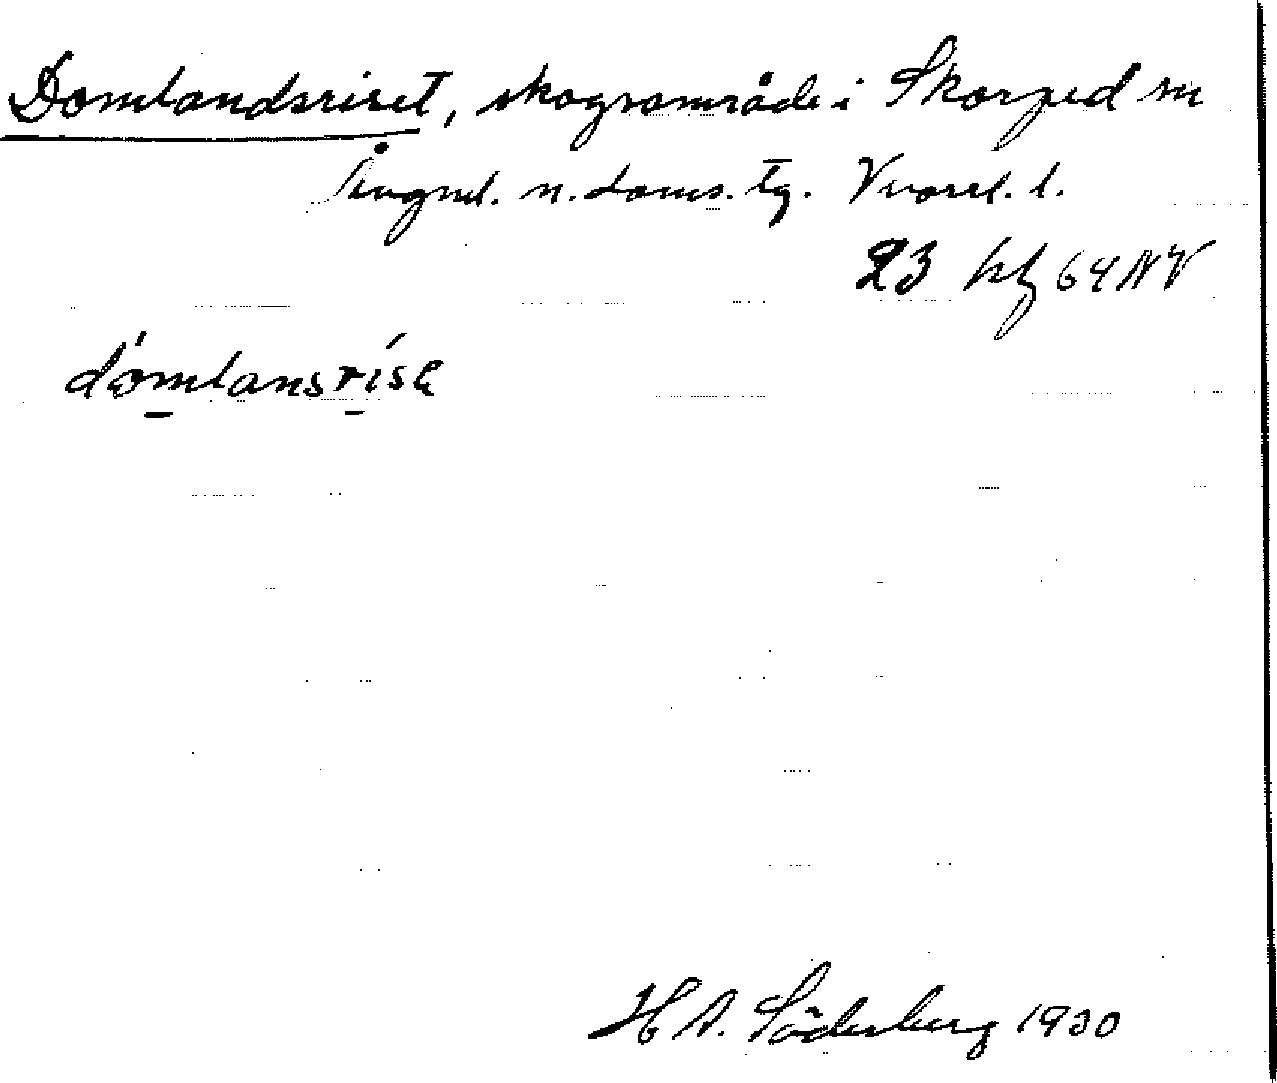 Domlandsriset, skogsområde i Skorped sn
Ångml. n. doms. tg. Vnorrl. l.
23 kbl 64 NV
dómlansrísɛ
H A. Söderberg 1930